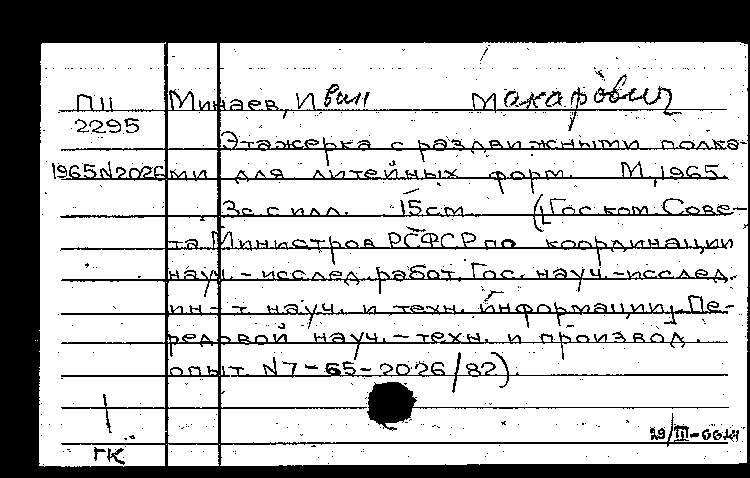 П11 Минаев, Иван Макарович
2295
Этажерка с раздвижными полка-
1965N2026 ми для литейных форм. М., 1965.
3с. с илл. 15см. ([Гос. ком. Сове-
та Министров РСФСР по координации
науч.-исслед. работ. Гос. науч.-исслед.
ин-т науч. и техн. информации]. Пе-
редовой науч.-техн. и производ.
опыт. N7-65-2026/82).
ГК